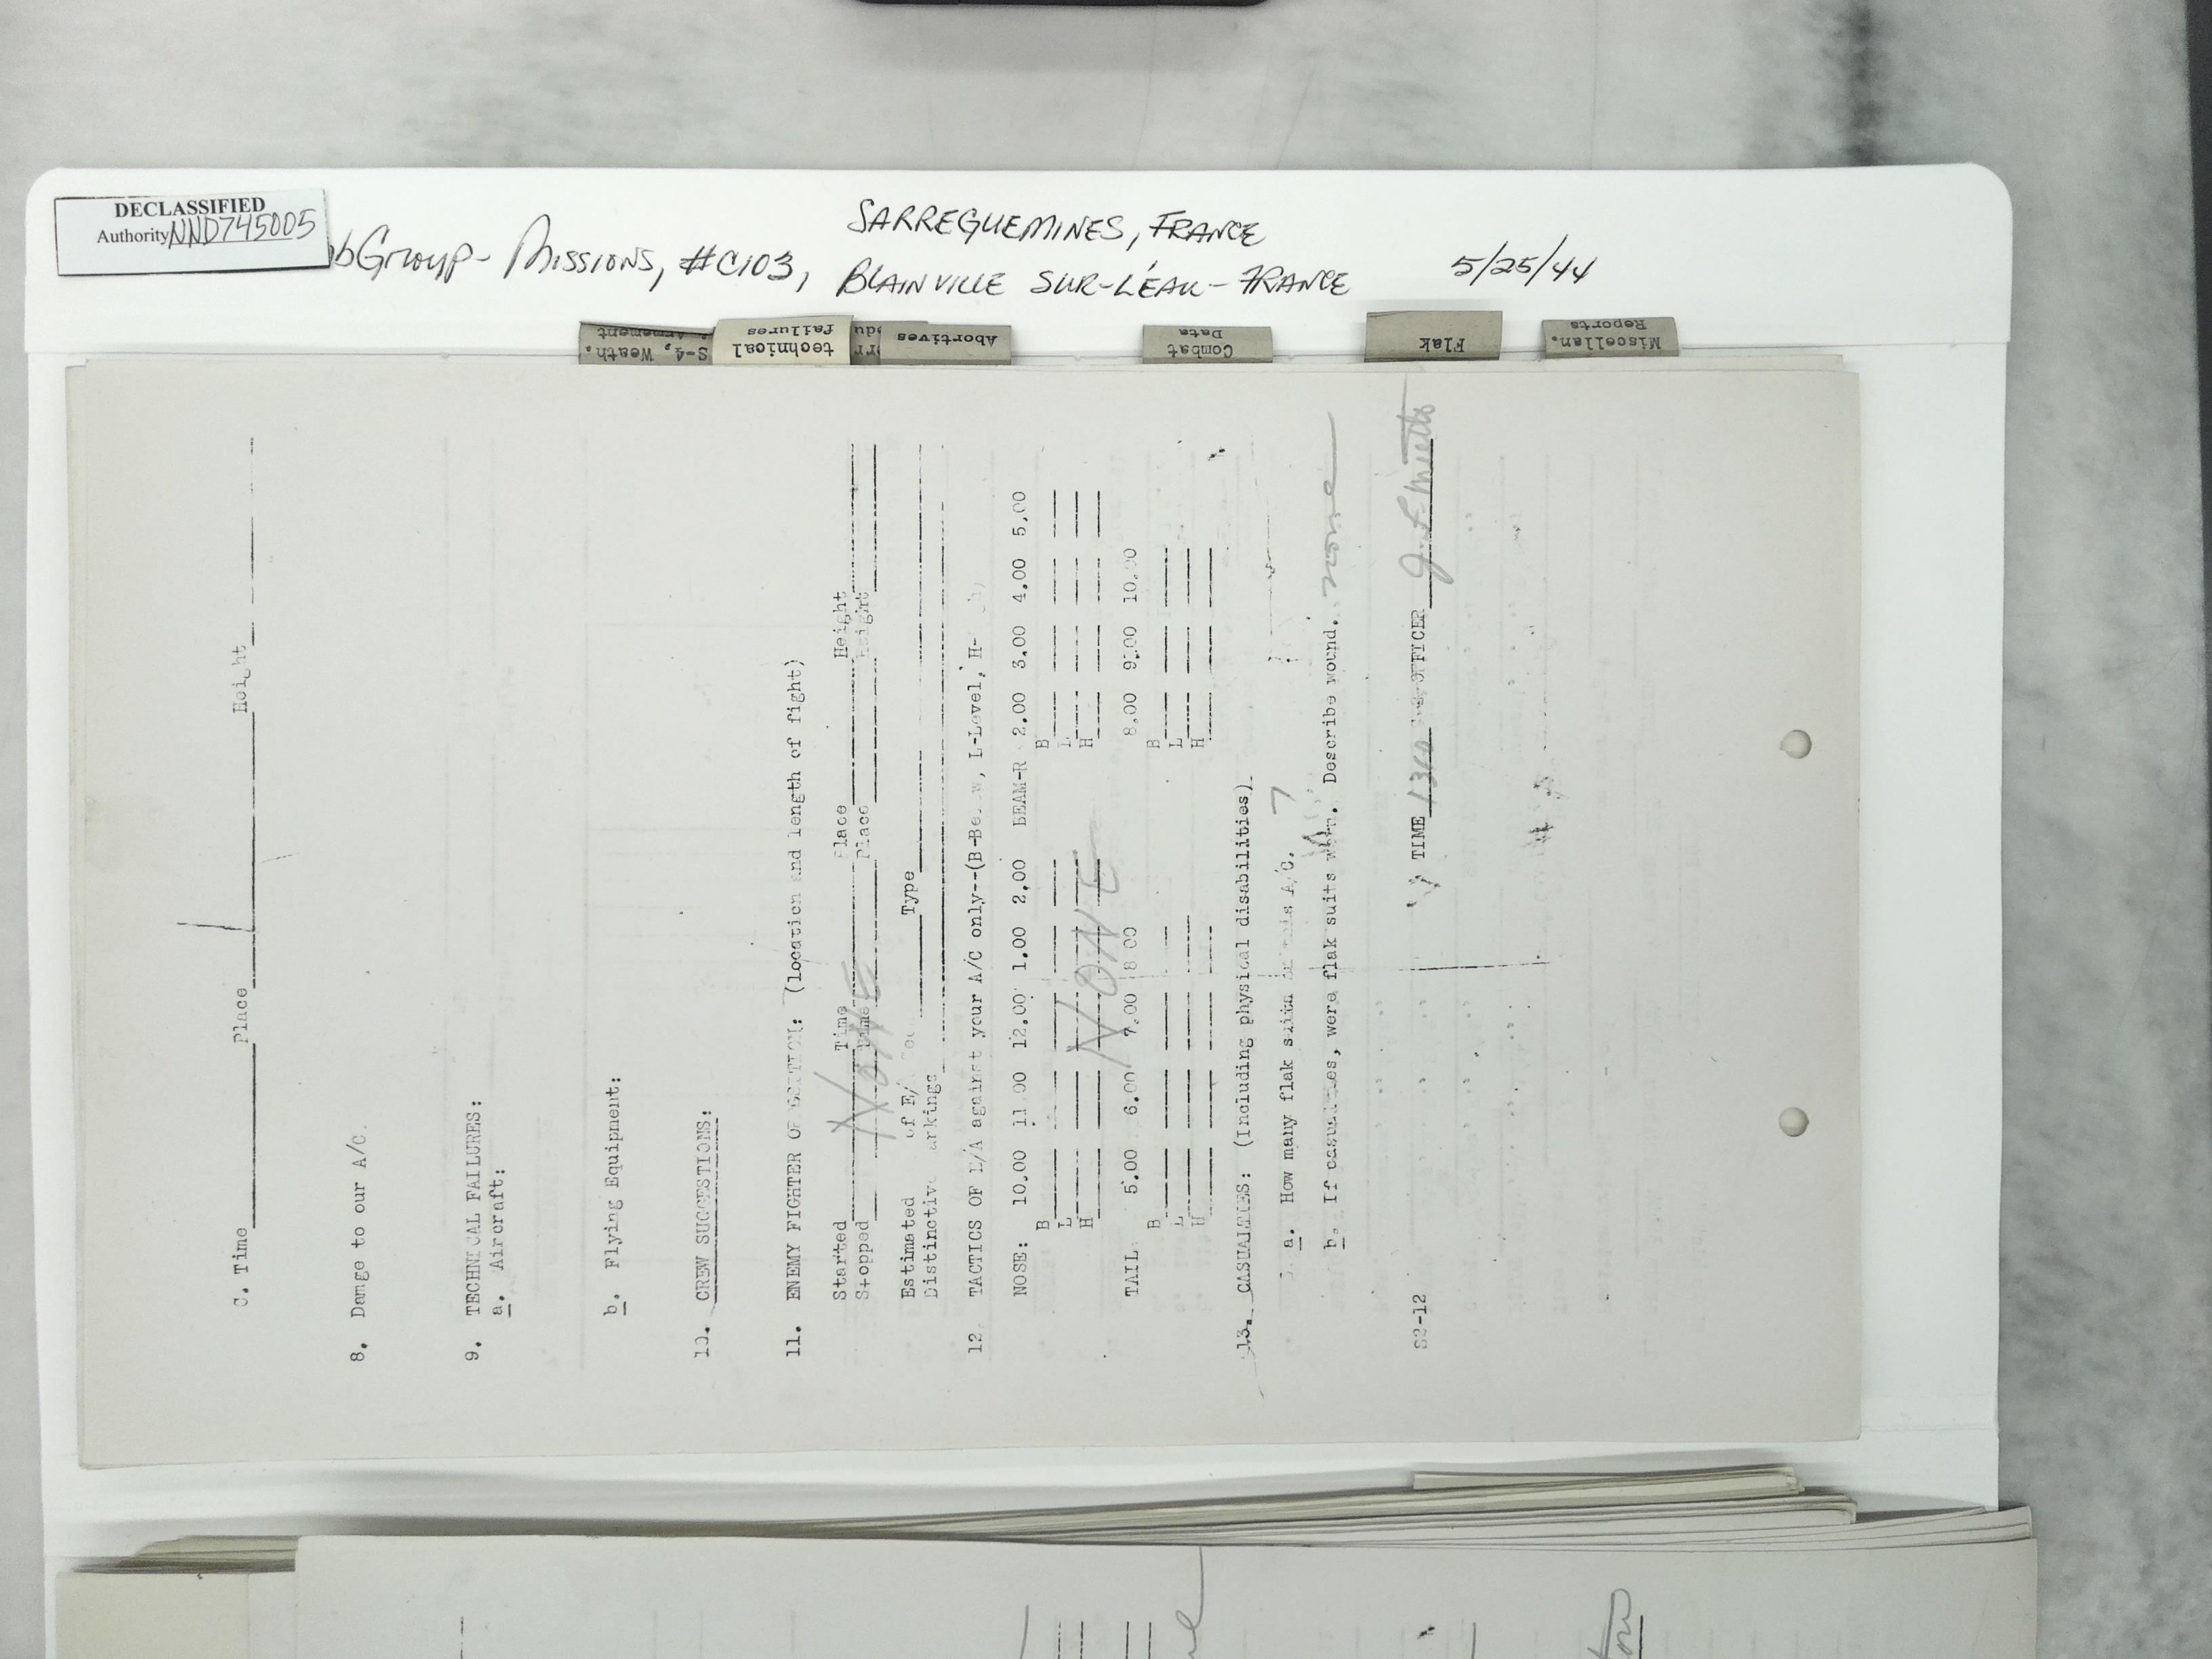 DECLASSIFIED
Authority NND745005
bGroup - Missions, #C103,
SARREGUEMINES, FRANCE
BLAINVILLE SUR-L'EAU - FRANCE
5/25/44
S-4, Weath.
Armement
technical
failures
Abortives
Combat
Data
Flak
Miscellan.
Reports
c. Time Place Height
8. Damge to our A/C.
9. TECHNICAL FAILURES:
a. Aircraft:
b. Flying Equipment:
10. CREW SUGGESTIONS:
11. ENEMY FIGHTER OPPOSITION: (location and length of fight)
Started Time Place Height
Stopped Time Place Height
NONE
Estimated of E/A Type
Distinctive markings
12. TACTICS OF E/A against your A/C only--(B-Below, L-Level, H-
NOSE: 10.00 11.00 12.00 1.00 2.00 BEAM-R 2.00 3.00 4.00 5.00
B B
L L
H H
NONE
TAIL 5.00 6.00 7.00 8.00 8.00 9.00 10.00
B B
L L
H H
13. CASUALTIES: (Including physical disabilities)
a. How many flak suits A/C. 7
b. If casualties, were flak suits worn. Describe wound. none
S2-12 TIME OFFICER